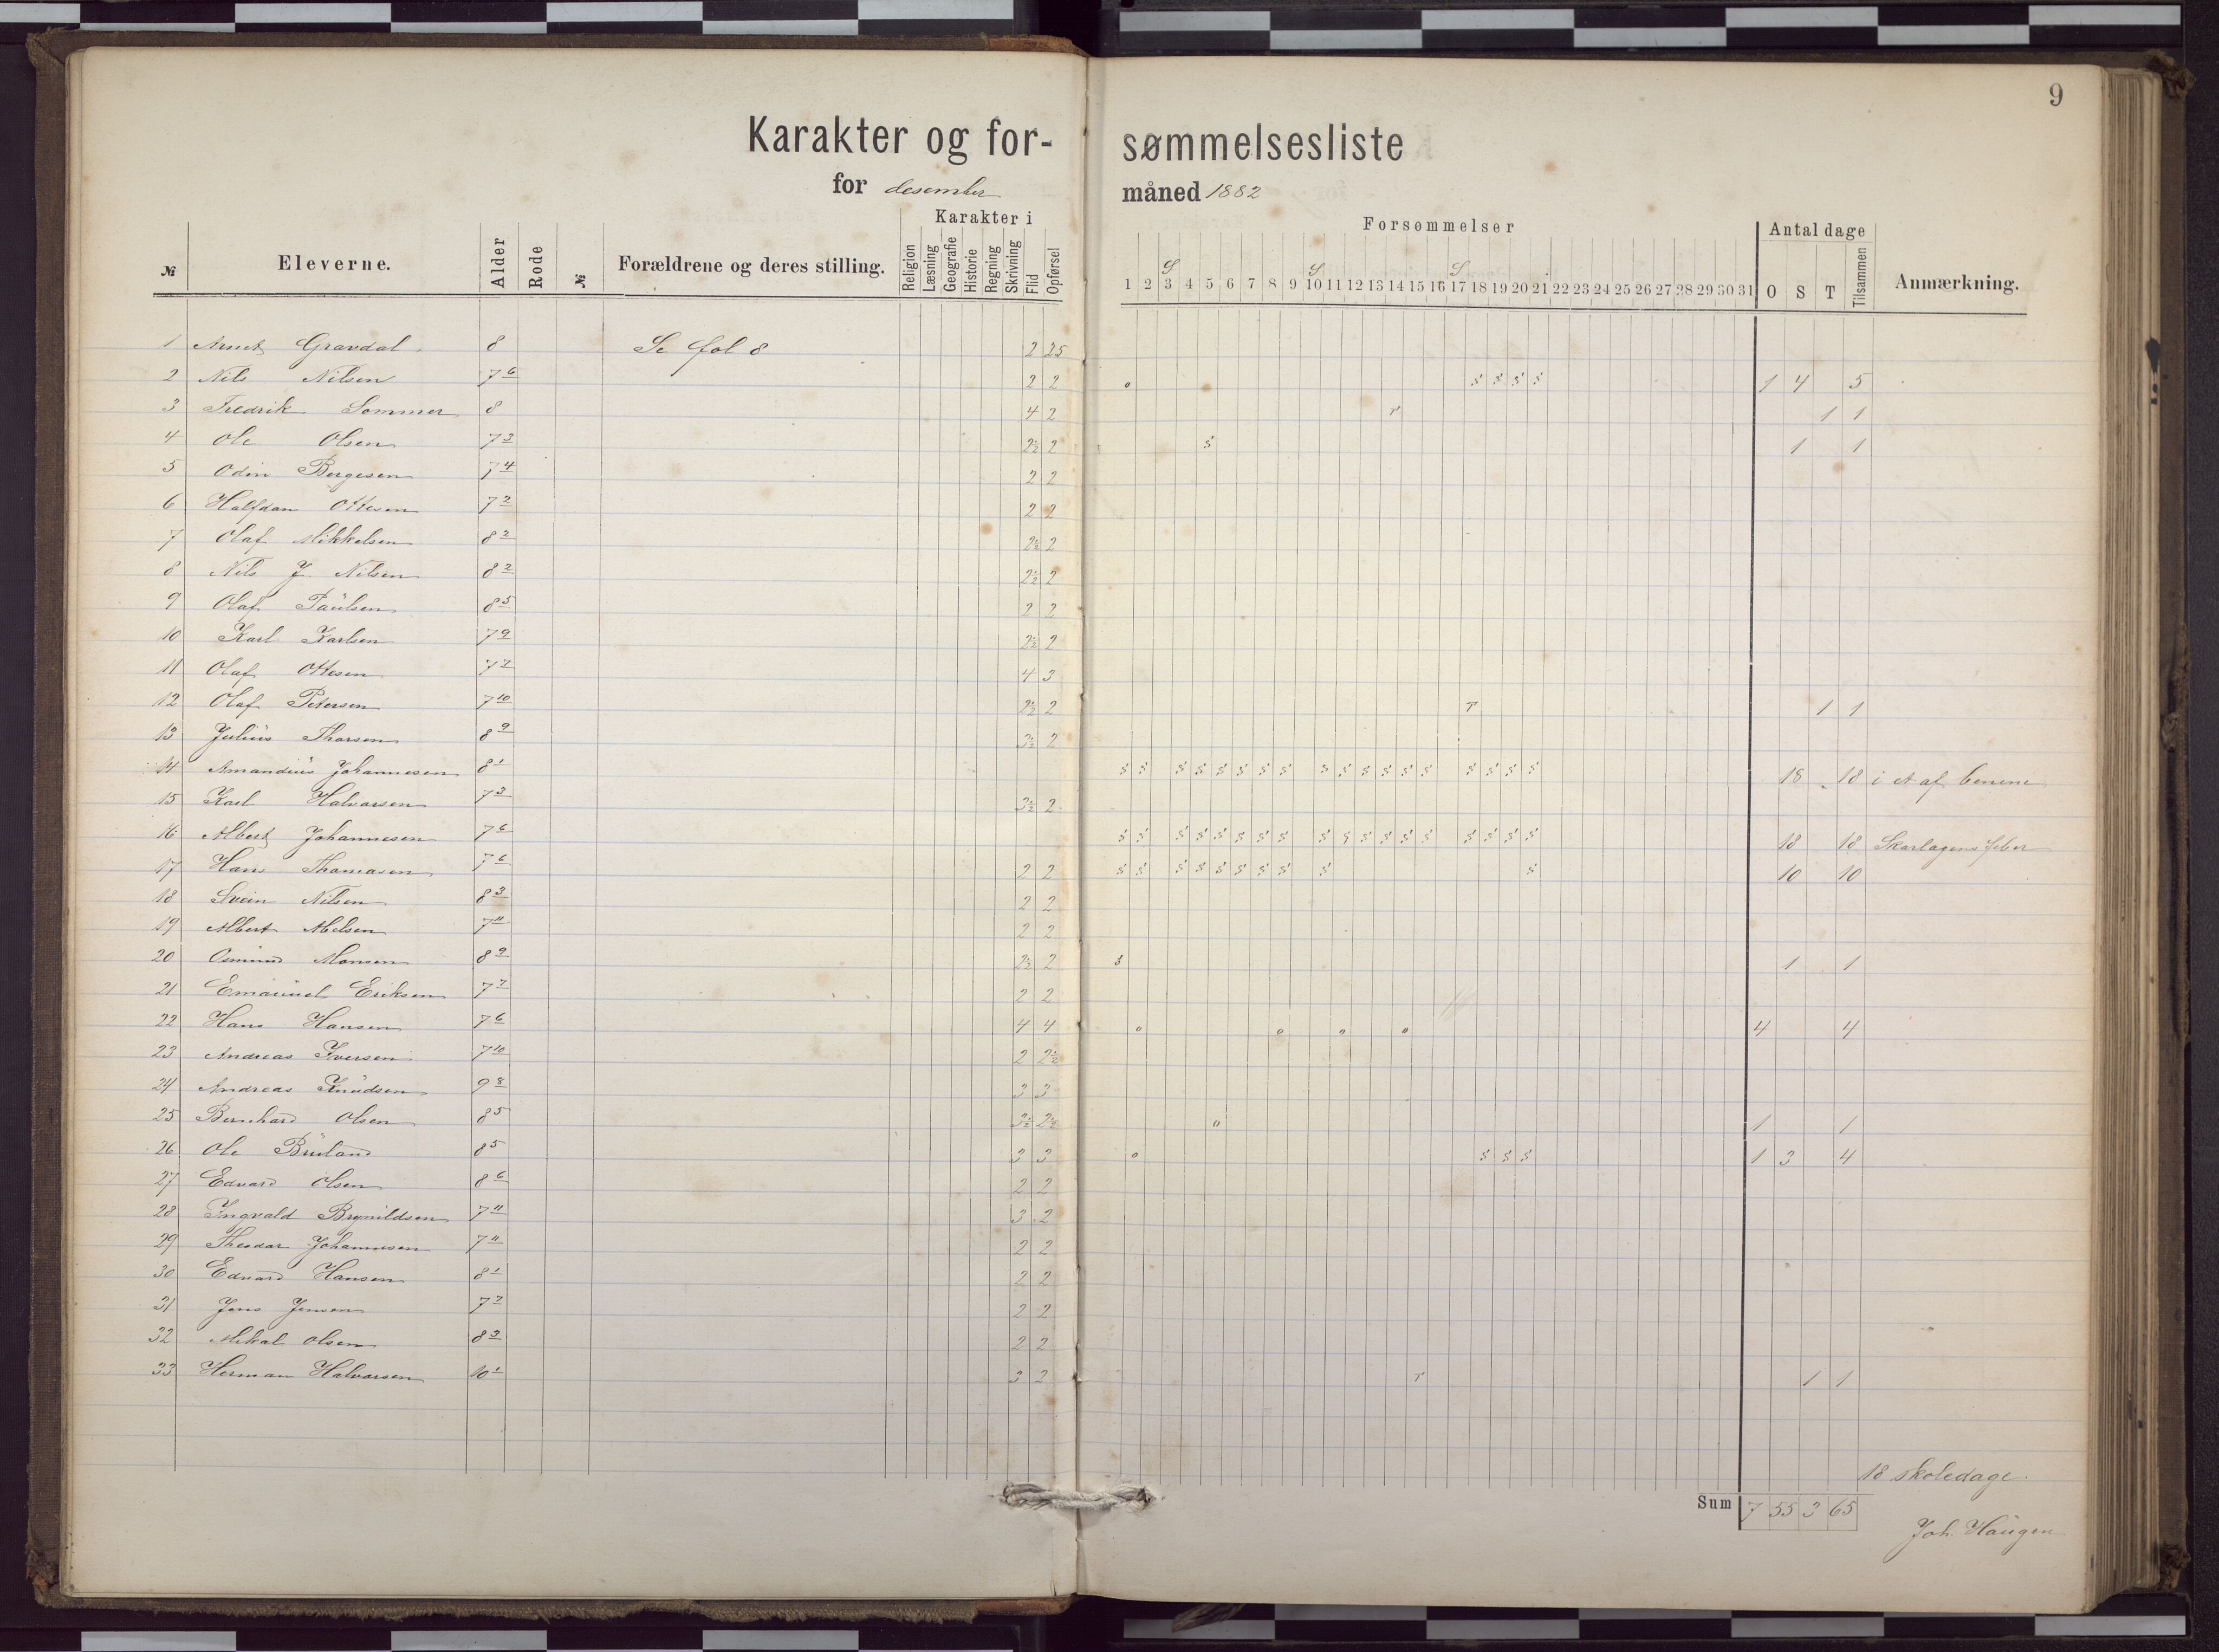 9
Karakter og for- sømmelsesliste
for desember måned 1882
Karakter i Forsømmelser Antal dage
№ Eleverne. Alder Rode № Forældrene og deres stilling. Religion Læsning Geografie Historie Regning Skrivning Flid Opførsel 1 2 3 4 5 6 7 8 9 10 11 12 13 14 15 16 17 18 19 20 21 22 23 24 25 26 27 28 29 30 31 O S T Tilsammen Anmærkning.
S S S
1 Gravdal 8 Se fol 8 2 25
2 Nils Nilsen 7 6 2 2 o s s s s 1 4 5
3 Fredrik Sommer 8 4 2 r 1 1
4 Ole Olsen 7 3 2½ 2 s 1 1
5 Odin Bergesen 7 4 2 2
6 Halfdan Ottesen 7 2 2 2
7 Olaf Mikkelsen 8 2 2½ 2
8 Nils J. Nilsen 8 2 2½ 2
9 Olaf Paulsen 8 5 2 2
10 Karl Karlsen 7 9 2½ 2
11 Olaf Ottesen 7 7 4 3
12 Olaf Petersen 7 10 2½ 2 r 1 1
13 Julius Thorsen 8 9 3½ 2
14 Amandius Johannesen 8 1 s s s s s s s s s s s s s s s s s s 18 18 i af benene
15 Karl Halvorsen 7 3 3½ 2
16 Albert Johannesen 7 6 s s s s s s s s s s s s s s s s s s 18 18 Skarlagensfeber
17 Hans Thomasen 7 6 2 2 s s s s s s s s s s 10 10
18 Svein Nilsen 8 3 2 2
19 Albert Abelsen 7 11 2 2
20 Osmund Monsen 8 9 2½ 2 s 1 1
21 Emanuel Eriksen 7 7 2 2
22 Hans Hansen 7 6 4 4 o o o o 4 4
23 Andreas Iversen 7 10 2 2½
24 Andreas Knudsen 9 8 3 3
25 Bernhard Olsen 8 5 3½ 2½ o 1 1
26 Ole Bruland 8 5 3 3 o s s s 1 3 4
27 Edvard Olsen 8 6 2 2
28 Ingvald Brynildsen 7 11 3 2
29 Theodor Johannesen 7 11 2 2
30 Edvard Hansen 8 1 2 2
31 Jens Jensen 7 7 2 2
32 Mikal Olsen 8 3 2 2
33 Herman Halvorsen 10 1 3 2 r 1 1
18 skoledage.
Sum 7 55 3 65
Joh. Haugen